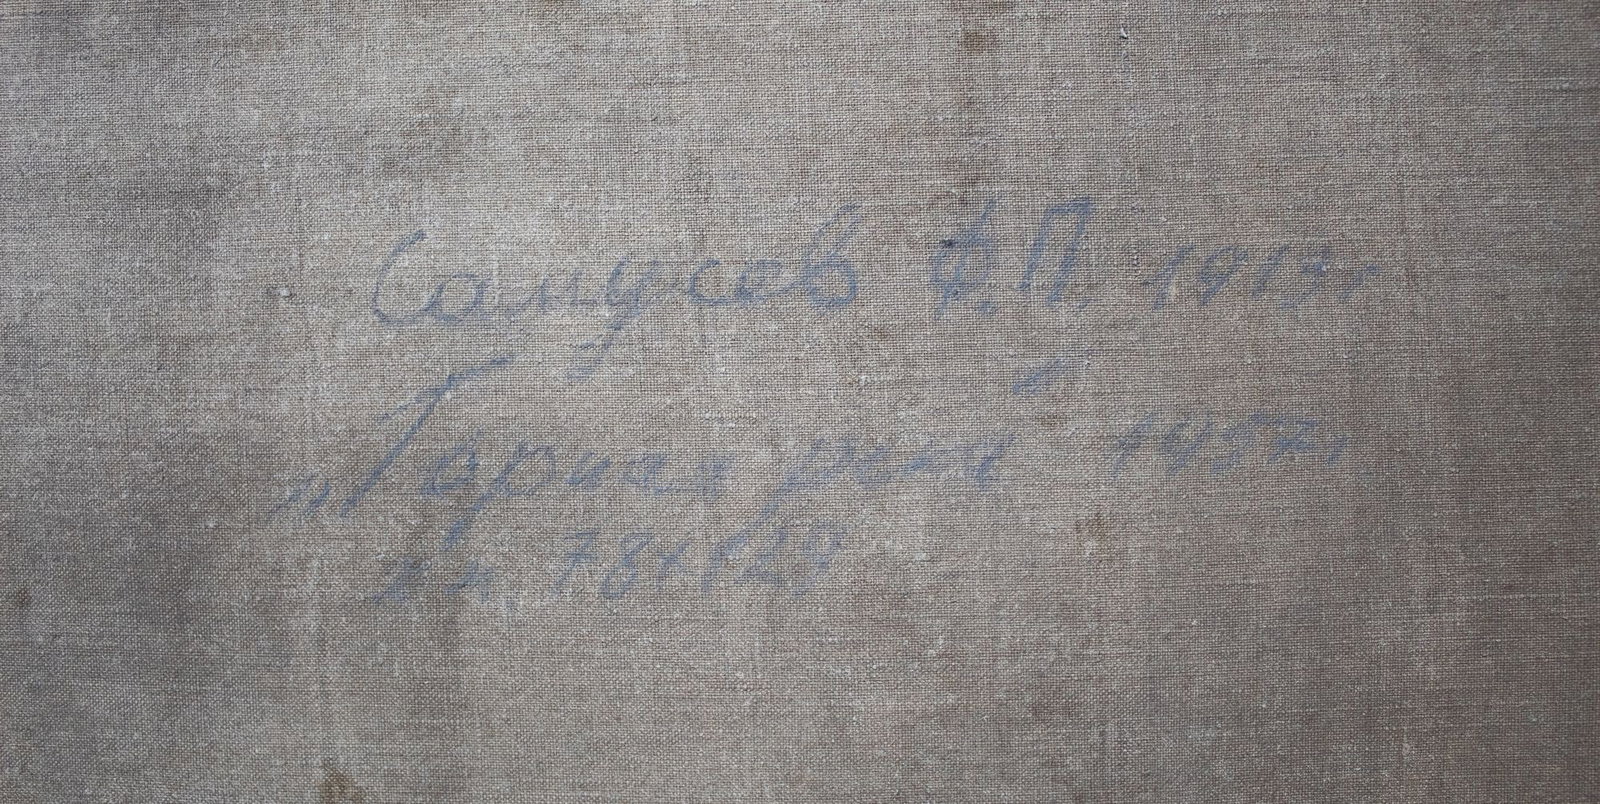 Самусев Ф.П. 1913г.
„Горная река" 1957г.
х.м. 78х129